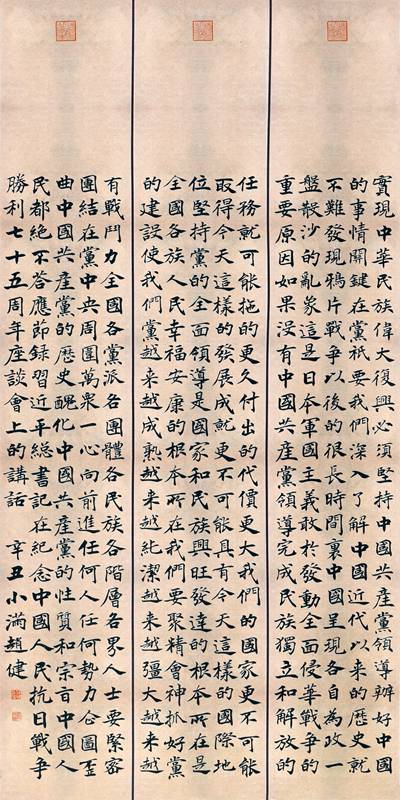 實現中華民族偉大復興必須堅持中國共產黨領導辦好中國
的事情關鍵在黨衹要我們深入了解中國近代以來的歷史就
不難發現鴉片戰爭以後的很長時間裏中國呈現各自為政一
盤散沙的亂象這是日本軍國主義敢於發動全面侵華戰爭的
重要原因如果沒有中國共產黨領導完成民族獨立和解放的
任務就可能拖的更久付出的代價更大我們的國家更不可能
取得今天這樣的發展成就更不可能具有今天這樣的國際地
位堅持黨的全面領導是國家和民族興旺發達的根本所在是
全國各族人民幸福安康的根本所在我們要聚精會神抓好黨
的建設使我們黨越來越成熟越來越純潔越來越彊大越來越
有戰鬥力全國各黨派各團體各民族各階層各界人士要緊密
團結在黨中央周圍萬衆一心向前進任何人任何勢力企圖歪
曲中國共產黨的歷史醜化中國共產黨的性質和宗旨中國人
民都絕不答應節録習近平總書記在紀念中國人民抗日戰爭
勝利七十五周年座談會上的講話 辛丑小滿趙健